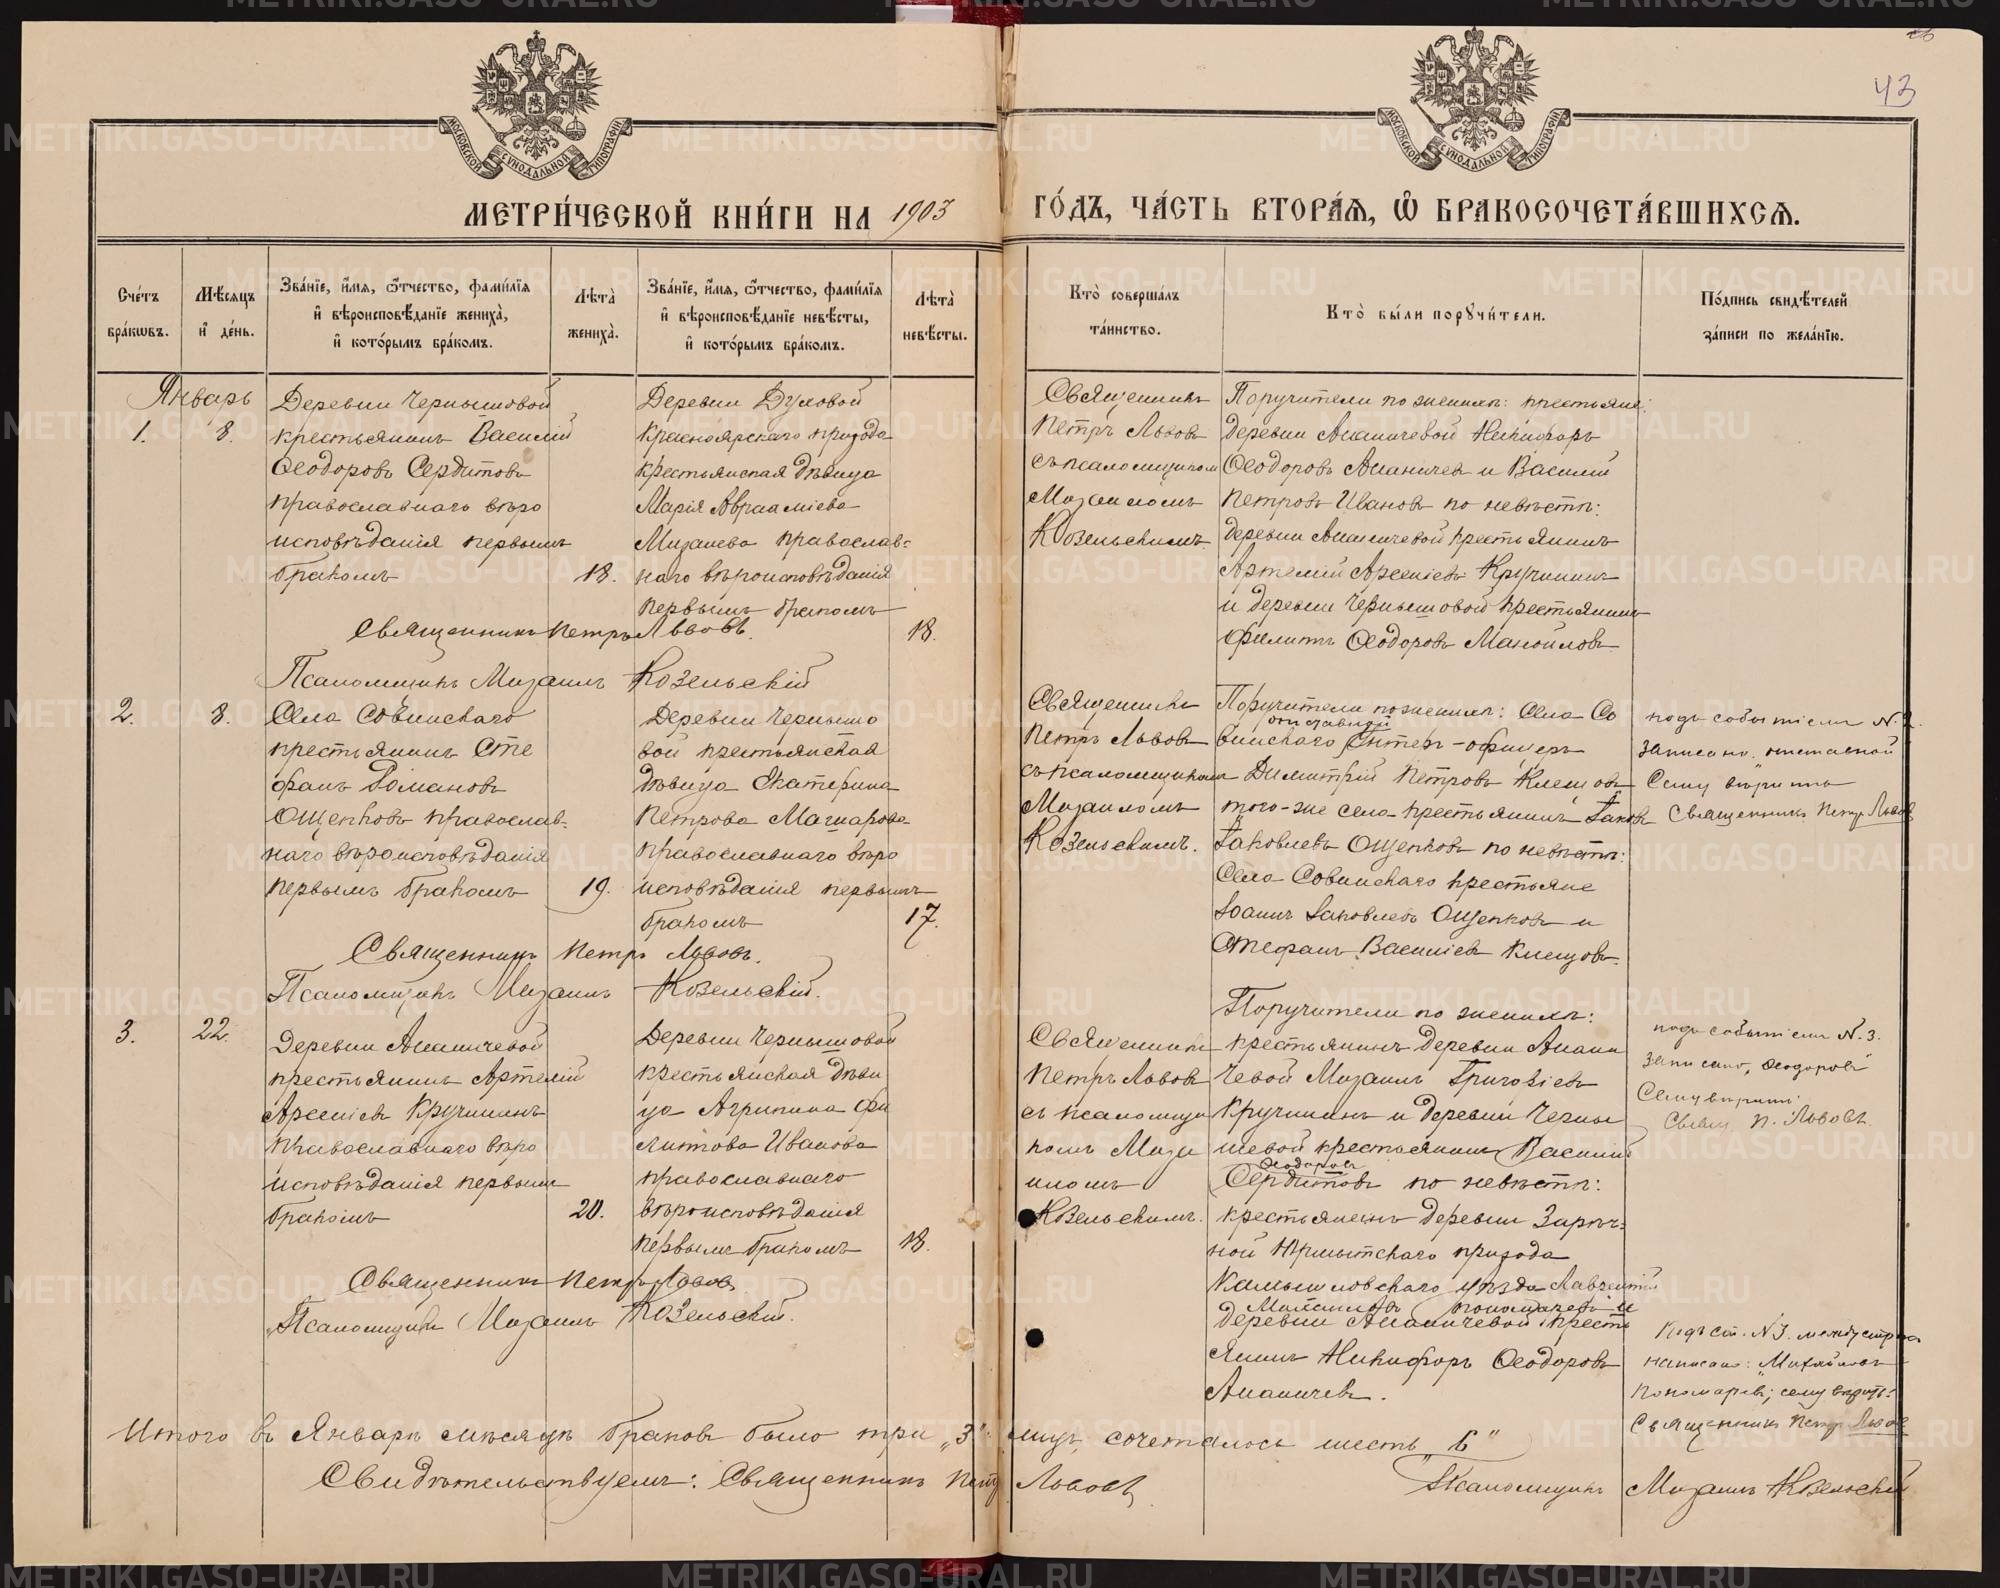 43
МОСКОВСКОЙ СУНОДАЛЬНОЙ ТИПОГРАФІИ
МОСКОВСКОЙ СУНОДАЛЬНОЙ ТИПОГРАФІИ
МЕТРИ́ЧЕСКОЙ КНИ́ГИ НА 1903 ГО́ДЪ, ЧА́СТЬ ВТОРА́Я, Ѽ БРАКОСОЧЕТА́ВШИХСЯ.
Сче́тъ бра́кѡвъ.
Мѣ́сяцъ и҆ де́нь.
Зва́нїе, и҆́мя, ѻ҆́тчество, фами́лїя и҆ вѣроисповѣ́данїе жениха̀, и҆ кото́рымъ бра́комъ.
Лѣ́та̀ жениха̀.
Зва́нїе, и҆́мя, ѻ҆́тчество, фами́лїя и҆ вѣроисповѣ́данїе невѣ́сты, и҆ кото́рымъ бра́комъ.
Лѣ́та̀ невѣ́сты.
Кто̀ соверша́лъ та́инство.
Кто̀ бы́ли порꙋчи́тели.
По́дпись свидѣ́телей за́писи по жела́нїю.
Январь
1.
8.
Деревни Чернышовой
крестьянинъ Василій
Ѳеодоровъ Сердитовъ
православнаго вѣро
исповѣданія первымъ
бракомъ
18.
Деревни Духовой
Красноярскаго прихода
крестьянская дѣвица
Марія Авраамiева
Михалева православ=
наго вѣроисповѣданія
первымъ бракомъ
18.
Священникъ Петръ Львовъ.
Псаломщикъ Михаилъ Козельскій
Священникъ
Петръ Львовъ
съ псаломщикомъ
Михаиломъ
Козельскимъ.
Поручители по женихѣ: крестьяне
деревни Ананичевой Никифоръ
Ѳеодоровъ Ананичевъ и Василій
Петровъ Ивановъ по невѣстѣ:
деревни Ананичевой крестьянинъ
Артемій Арсеніевъ Кручининъ
и деревни Чернышовой крестьянинъ
Филиппъ Ѳеодоровъ Маноиловъ.
2.
8.
Села Совинскаго
крестьянинъ Сте
фанъ Романовъ
Ощепковъ православ=
наго вѣроисповѣданія
первымъ бракомъ
19.
Деревни Чернышо
вой крестьянская
дѣвица Екатерина
Петрова
православнаго вѣро
исповѣданія первымъ
бракомъ
17.
Священникъ Петръ Львовъ.
Псаломщикъ Михаилъ Козельскій.
Священникъ
Петръ Львовъ
съ псаломщикомъ
Михаиломъ
Козельскимъ.
Поручители по женихѣ: Села Со
отставной
винскаго Унтеръ-офицеръ
Димитрій Петровъ Клещовъ
того-же села крестьянинъ Іаковъ
Іаковлевъ Ощепковъ по невѣстѣ:
Села Совинскаго крестьяне
Іоаннъ Іаковлевъ Ощепковъ и
Стефанъ Василіевъ Клещовъ.
подъ событіемъ № 2.
записано: отставной
Сему вѣрить
Священникъ Петръ Львовъ
3.
22.
Деревни Ананичевой
крестьянинъ Артемій
Арсеніевъ Кручининъ
православнаго вѣро
исповѣданія первымъ
бракомъ
20.
Деревни Чернышовой
крестьянская дѣви
ца Агрипина Фи
липпова Иванова
православнаго
вѣроисповѣданія
первымъ бракомъ
18.
Священникъ Петръ Львовъ
Псаломщикъ Михаилъ Козельскій.
Священникъ
Петръ Львовъ
съ псаломщи
комъ Миха
иломъ
Козельскимъ.
Поручители по женихѣ:
крестьянинъ деревни Анани
чевой Михаилъ Григоріевъ
Кручининъ и деревни Черны
шевой крестьянинъ Василій
Ѳеодоровъ
Сердитовъ по невѣстѣ:
крестьянинъ деревни Зарѣч=
ной Юрмытскаго прихода
Камышловскаго уѣзда Лаврентій
Михаиловъ Пономаревъ и
деревни Ананичевой кресть
янинъ Никифоръ Ѳеодоровъ
Ананичевъ.
подъ событіемъ № 3.
записано, Ѳеодоровъ
Сему вѣрить:
Свящ. П. Львовъ.
Подъ ст. № 3. между строкъ
написано: Михайловъ
Пономаревъ; сему вѣрить:
Священникъ Петръ Львовъ
Итого въ Январѣ мѣсяцѣ браковъ было три „3“: лицъ сочеталось шесть „6“
Свидѣтельствуемъ: Священникъ Петръ Львовъ Псаломщикъ Михаилъ Козельскій
METRIKI.GASO-URAL.RU